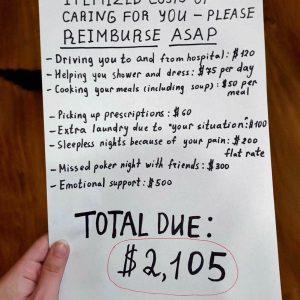 ITEMIZED COSTS OF
CARING FOR YOU - PLEASE
REIMBURSE ASAP
- Driving you to and from hospital: $120
- Helping you shower and dress: $75 per day
- Cooking your meals (including soup): $50 per
meal
- Picking up prescriptions: $60
- Extra laundry due to "your situation": $100
- Sleepless nights because of your pain: $200
flat rate
- Missed poker night with friends: $300
- Emotional support: $500
TOTAL DUE:
$2,105